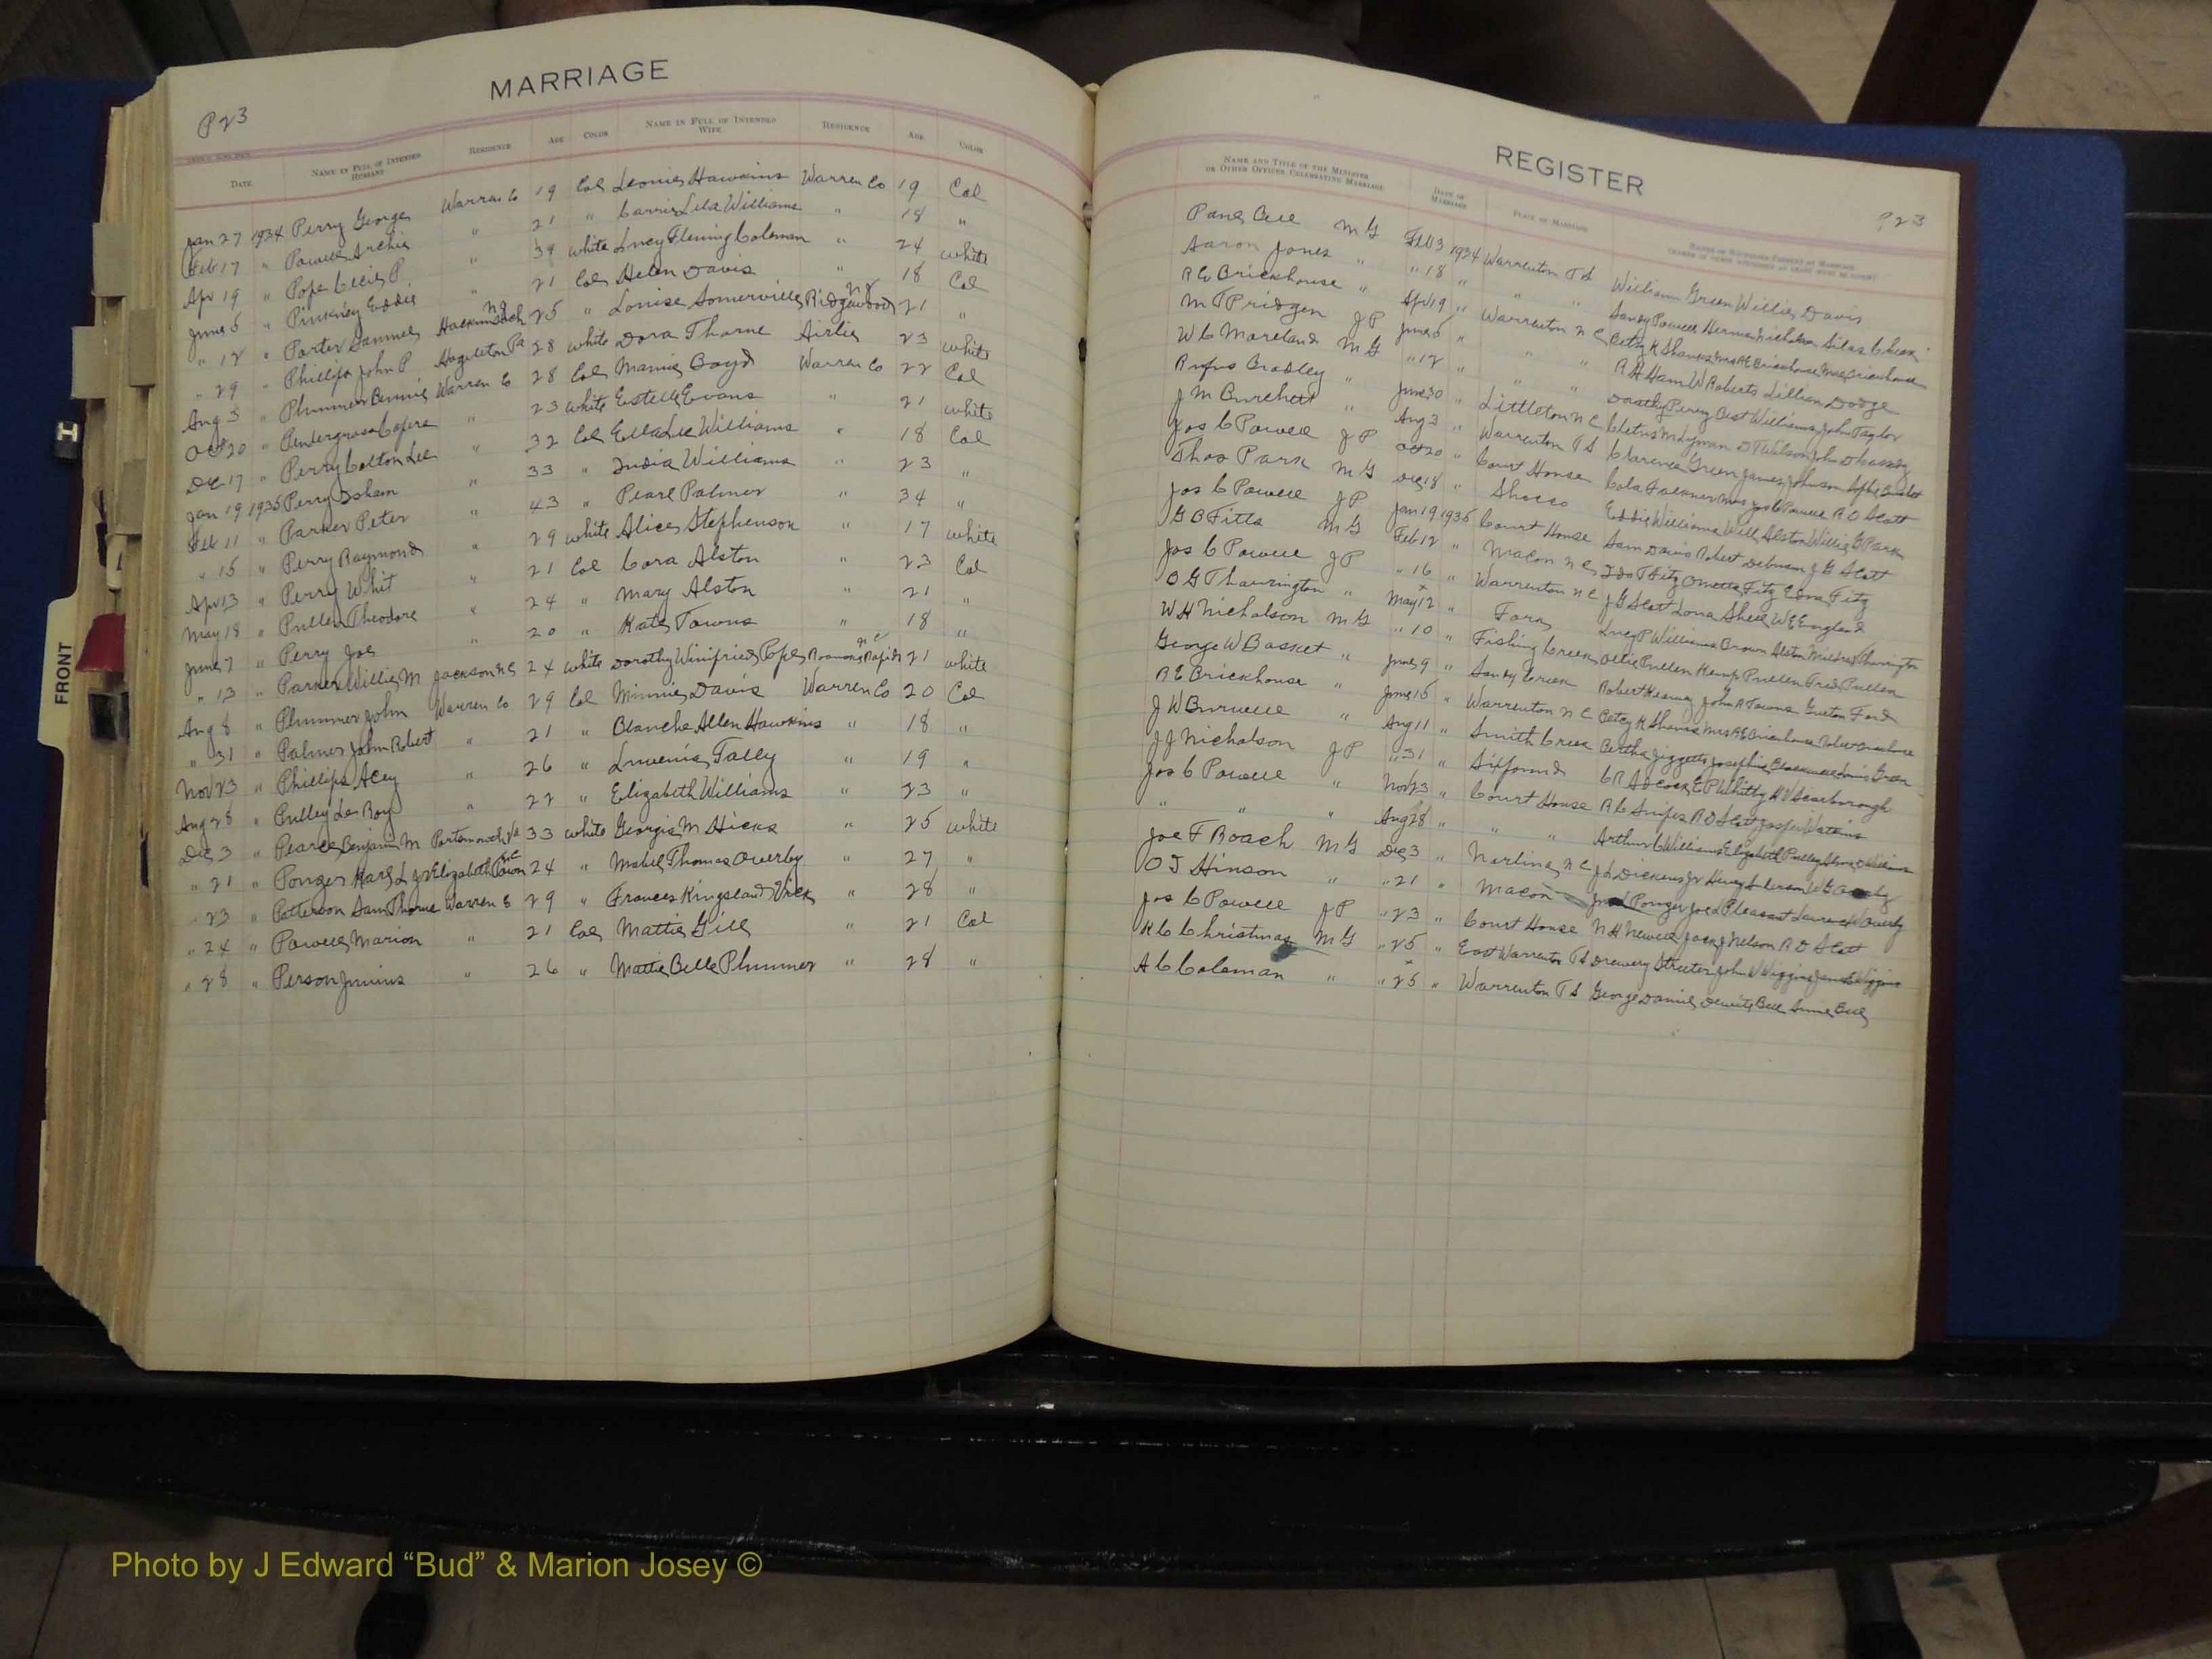 MARRIAGE
P23
DATE NAME IN FULL OF INTENDED HUSBAND RESIDENCE AGE COLOR NAME IN FULL OF INTENDED WIFE RESIDENCE AGE COLOR
Jan 27 1934 Perry George Warren Co 19 Col Leonie Hawkins Warren Co 19 Col
Feb 17 " Powell Archie " 21 " Carrie Lela Williams " 18 "
Apr 19 " Pope Cecil P " 39 white Lucy Fleming Coleman " 24 white
June 5 " Pinkney Eddie " 21 Col Helen Davis " 18 Col
" 12 " Porter Samuel Hackensack NJ 25 " Louise Somerville Ridgewood NJ 21 "
" 29 " Phillips John P Hazleton Pa 28 white Dora Thorne Airlie 23 white
Aug 3 " Plummer Bennie Warren Co 28 Col Mamie Boyd Warren Co 22 Col
Oct 20 " " 23 white Estelle Evans " 21 white
Dec 17 " Perry Colton Lee " 32 Col Ella Lee Williams " 18 Col
Jan 19 1935 Perry Isham " 33 " India Williams " 23 "
Feb 11 " Parker Peter " 43 " Pearl Palmer " 34 "
" 15 " Perry Raymond " 29 white Alice Stephenson " 17 white
Apr 13 " Perry Whit " 21 Col Cora Alston " 23 Col
May 18 " Pullen Theodore " 24 " Mary Alston " 21 "
June 7 " Perry Joe " 20 " Kate Towns " 18 "
" 13 " Parker Willie M Jackson NC 24 white Dorothy Winifried Cope Roanoke Rapids NC 21 white
Aug 8 " Plummer John Warren Co 29 Col Minnie Davis Warren Co 20 Col
" 31 " Palmer John Robert " 21 " Blanche Allen Hawkins " 18 "
Nov 23 " Phillips Acey " 26 " Luvenia Talley " 19 "
Aug 28 " Pulley Le Roy " 22 " Elizabeth Williams " 23 "
Dec 3 " Pearce Benjamin M Portsmouth Va 33 white Georgie M Hicks " 25 white
" 21 " Ponzer Karl L Jr Elizabeth Town NC 24 " Mabel Thomas Overby " 27 "
" 23 " Patterson Sam Thorne Warren Co 29 " Frances Kingsland Vick " 28 "
" 24 " Powell Marion " 21 Col Mattie Gill " 21 Col
" 28 " Person Junius " 26 " Mattie Belle Plummer " 28 "
REGISTER
P23
NAME AND TITLE OF THE MINISTER OR OTHER OFFICER CELEBRATING MARRIAGE DATE OF MARRIAGE PLACE OF MARRIAGE
M G Feb 3 1934 Warrenton T S William Green Willie Davis
Aaron Jones " " 18 " " " Sandy Powell Herman Nicholson Silas
R E Brickhouse " Apr 19 " Warrenton N C Betty K Shaver Mrs R E Brickhouse
M T Pridgen J P June 5 " " " R H Ham W Roberts Lillian Dodge
W C Moreland M G " 12 " " " Dorothy Perry Williams John Taylor
Rufus Bradley " June 30 " Littleton N C
J M Burchett " Aug 3 " Warrenton T S Clarence Green James Johnson
Jos C Powell J P Oct 20 " Court House Mrs Jos C Powell R O Scott
Thos Park M G Dec 18 " Shocco Eddie Williams Will Alston Willie G Park
Jos C Powell J P Jan 19 1935 Court House Sam Davis Robert J G Scott
G B Fitts M G Feb 12 " Macon N C Fitz Edna Fitz
Jos C Powell J P " 16 " Warrenton N C J G Scott W E England
O G Tharrington " May 12 " Fork Lucy P Williams Brown Alston Mildred Tharrington
W H Nicholson M G " 10 " Fishing Creek Ollie Pullen Kemp Pullen Fred Pullen
George W Basket " June 9 " Sandy Creek Robert John R Towns Ford
R E Brickhouse " June 15 " Warrenton N C Betty K Shaver Mrs R E Brickhouse
J W Burwell " Aug 11 " Smith Creek Bertha Jiggetts Josephine Green
J J Nicholson J P " 31 " Sixpound C R Adcock E P Whitby H D Scarborough
Jos C Powell " Nov 23 " Court House R C Snipes R O Scott Jasper Watkins
" " " Aug 28 " " " Arthur C Williams Elizabeth Pulley
Joe F Roach M G Dec 3 " Norlina N C J L Dickens Jr
O I Hinson " " 21 " Macon
Jos C Powell J P " 23 " Court House N H Newell Jack J Nelson R O Scott
K C Christmas M G " 25 " East Warrenton T S Drewery Streeter John
A C Coleman " " 25 " Warrenton T S George Daniel Dewitt Bell Annie Bell
FRONT
H
Photo by J Edward “Bud” & Marion Josey ©